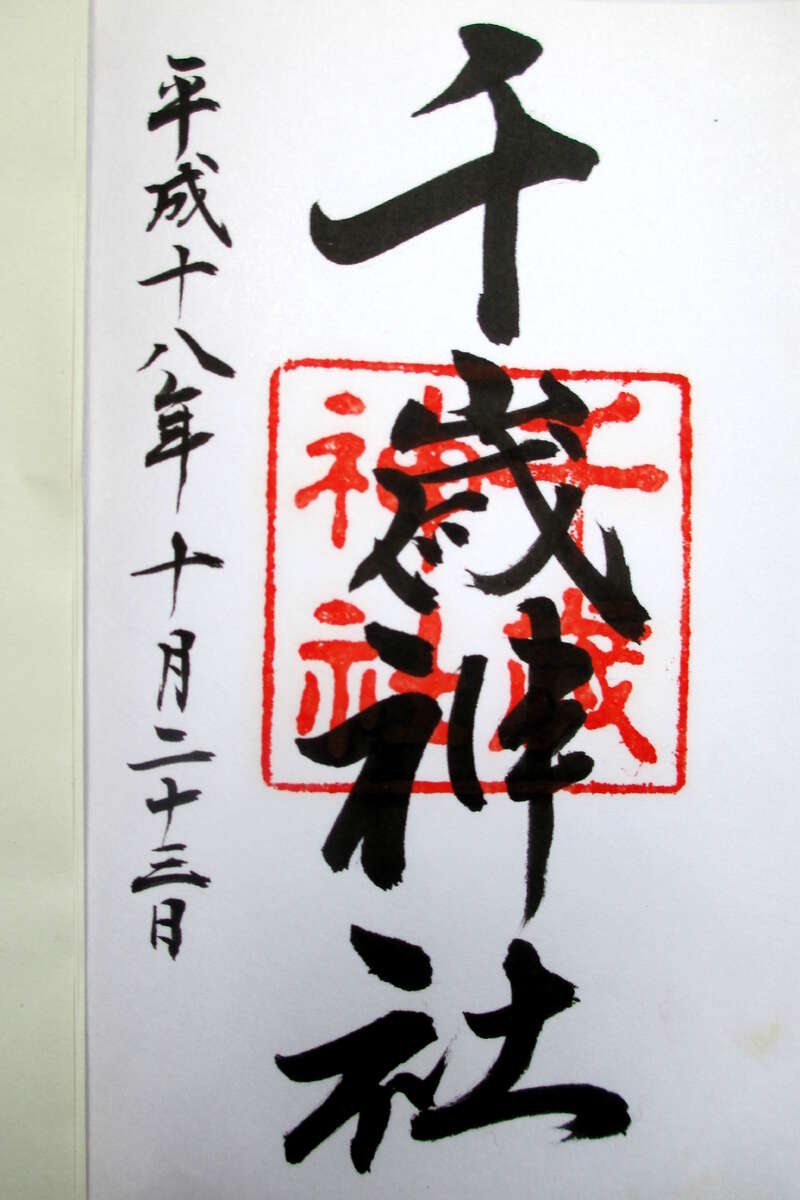 千歳神社
千歳
神社
平成十八年十月二十三日